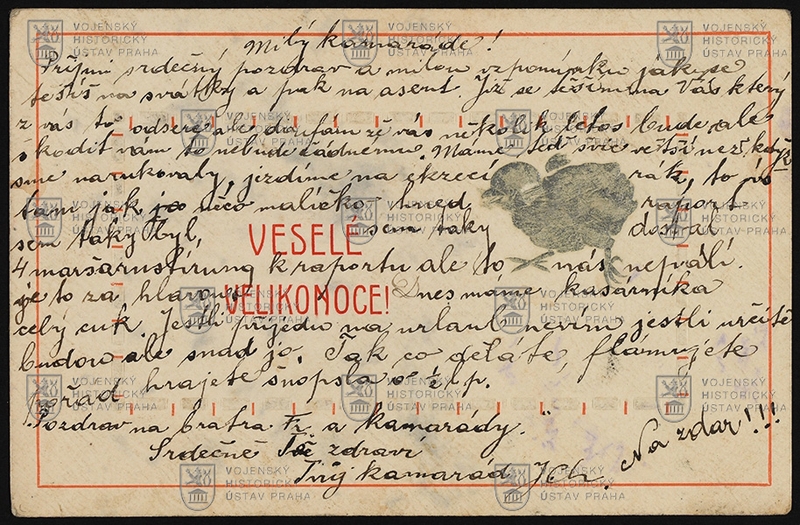 Milý kamaráde!
Příjmi srdečný pozdrav a milou vzpomínku jak se
těšíš na svátky a pak na asent. Již se těšíme na Vás který
z vás to odsere ale doufám že vás několik letos bude, ale
škodit vám to nebude žádnému. Máme teď švic větší než když
sme narukovaly, jezdíme na ekzecí rák, to jo
tam jak jo něco maličko hned raport.
sem táky byl, sem taky dostal
VESELÉ
4 maršarustirung k raportu ale to nás nepálí.
je to za, hlavou Dnes máme kasárníka
VELIKONOCE!
celý cuk. Jestli přijedu na urlaub nevím jestli určitě
budou ale snad jo. Tak co děláte, flámujete
pořád hrajete šnopsla o lp.
Pozdrav na bratra Fr. a kamarády.
Srdečně Tě zdraví
Tvůj kamarád
Na zdar!!!
VOJENSKÝ
HISTORICKÝ
ÚSTAV PRAHA